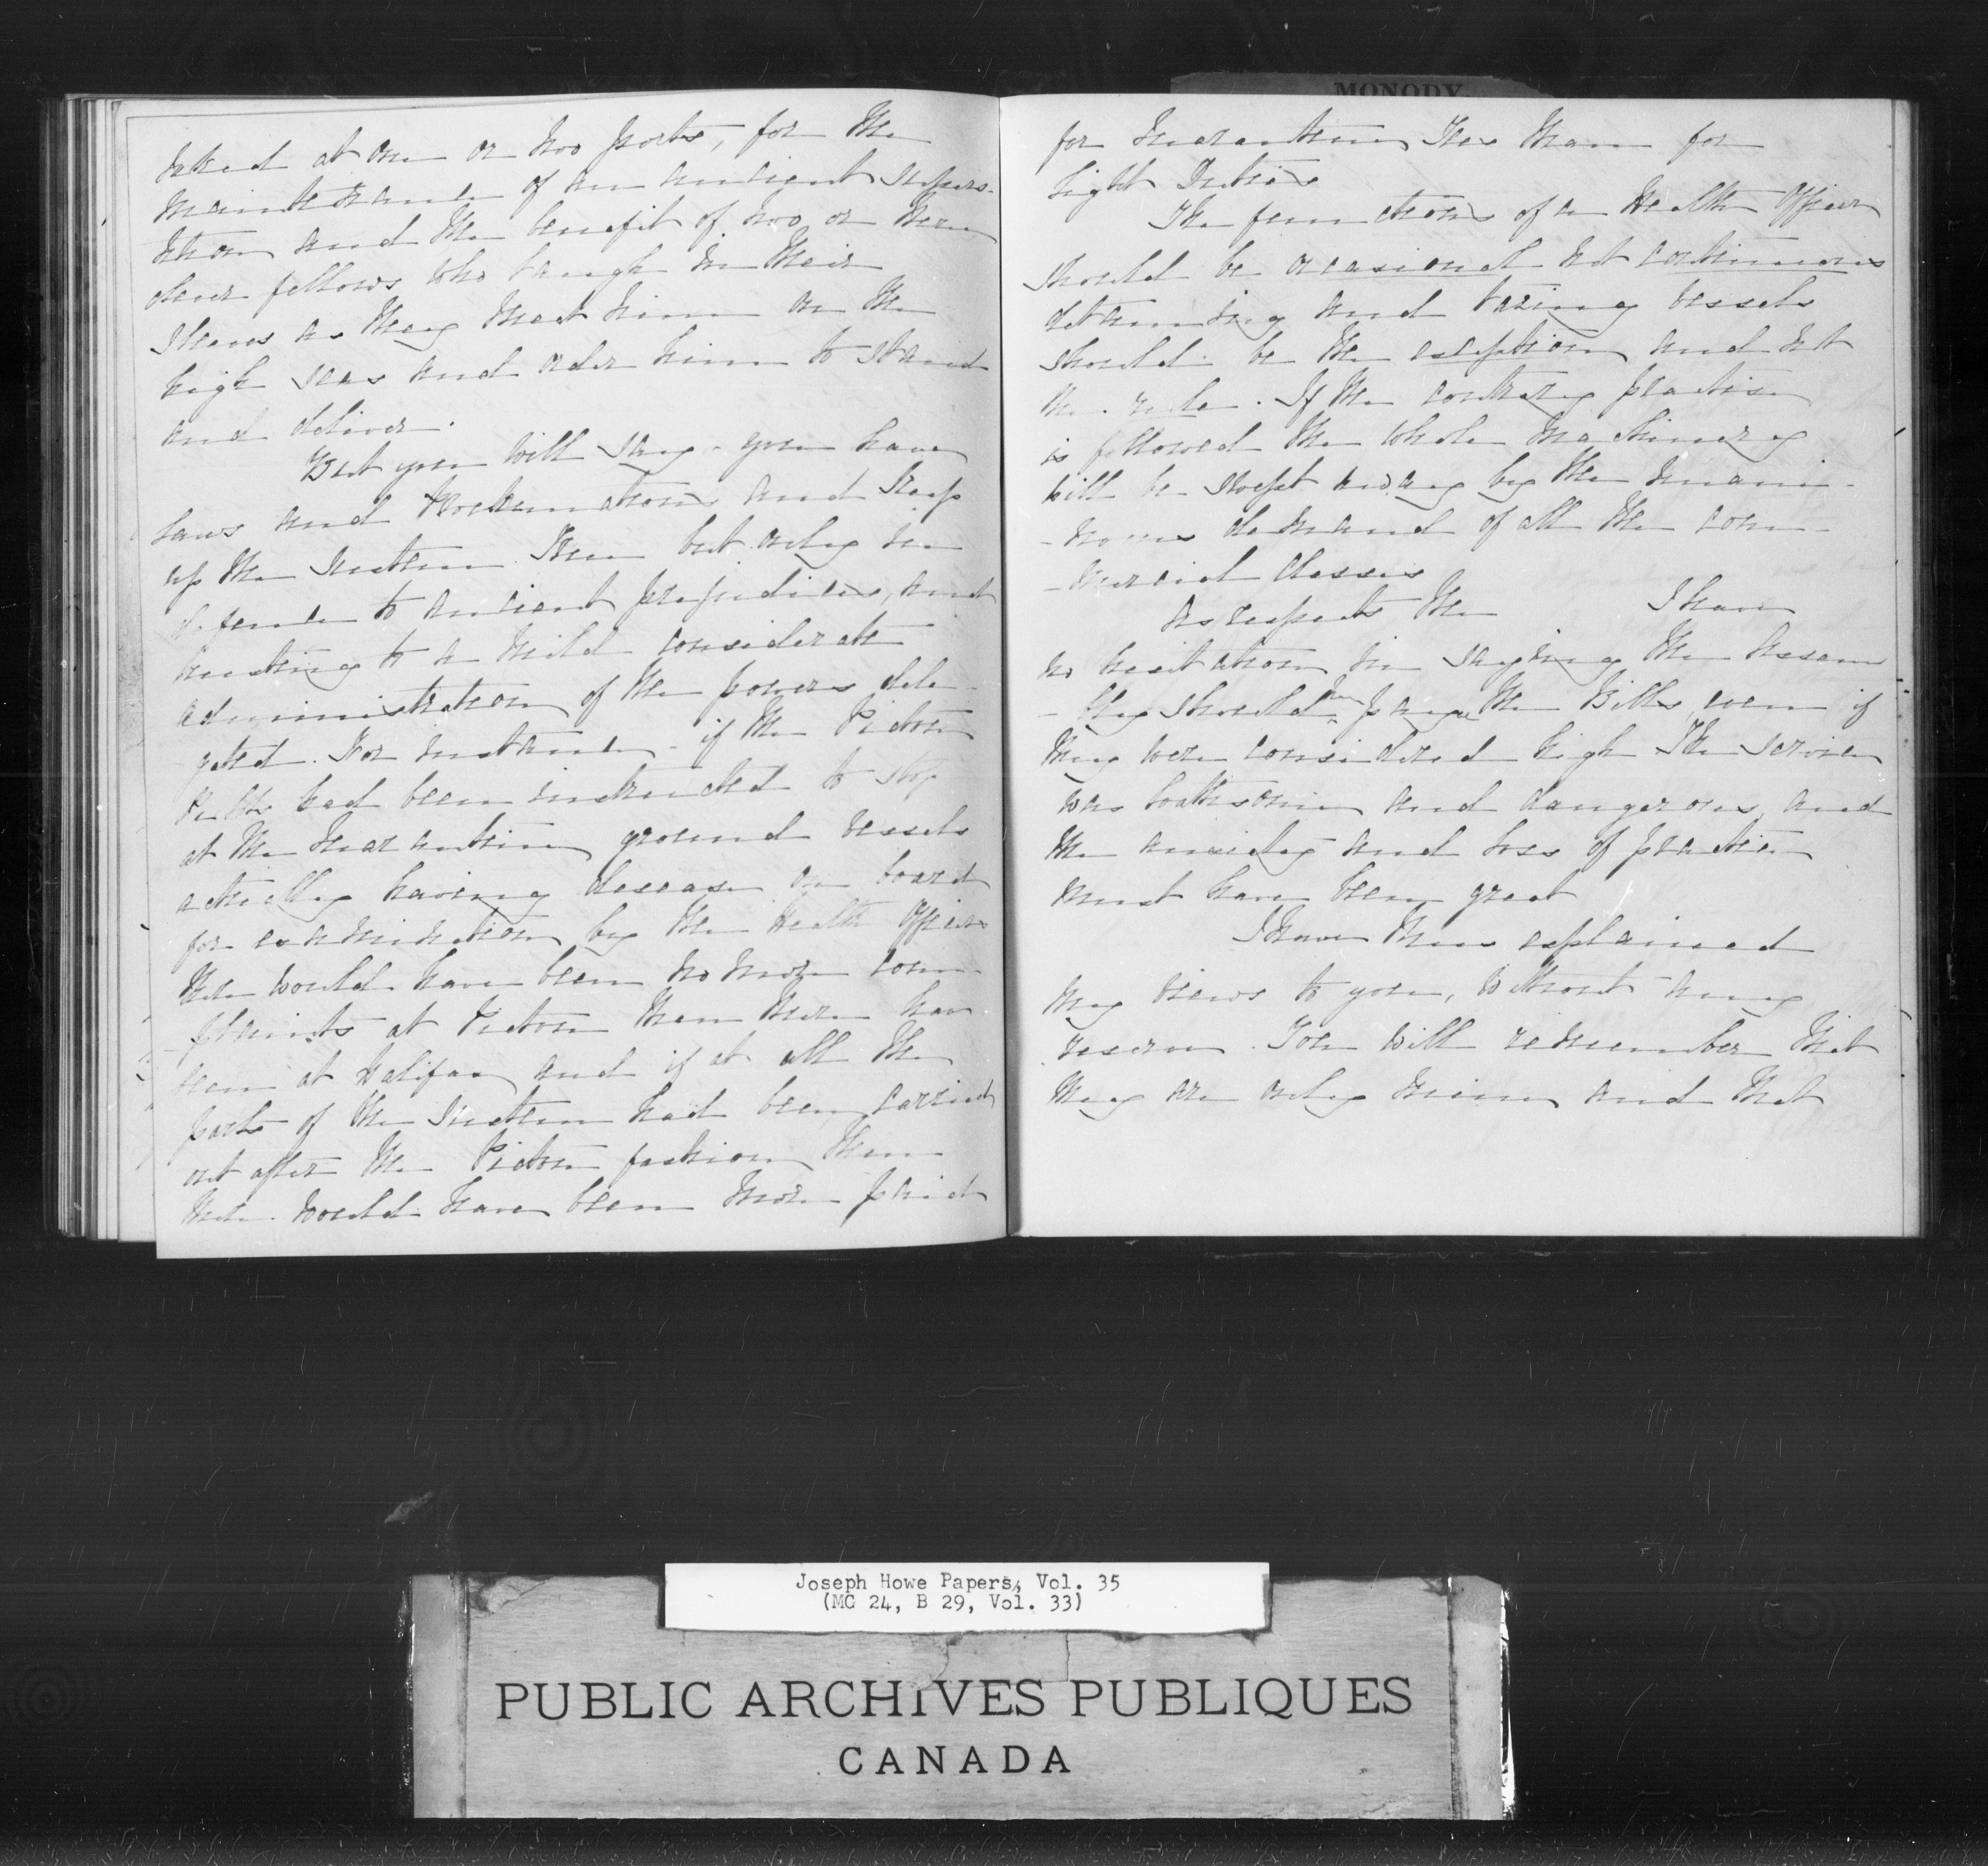 at one or two ports, for the
maintenance of an ancient supers-
tition and the benefit of two or three
clever fellows who laugh in their
sleeves as they meet him on the
high seas and order him to stand
and deliver.
But you will say - you have
Laws and Proclamations and keep
up the system. True but only in
deference to ancient prejudices, and
trusting to a mild considerate
administration of the powers dele-
gated. For instance - if the Pictou
Pilots had been instructed to stop
at the Quarantine ground vessels
actually having disease on board
for examination by the Health Officer
there would have been no more com-
plaints at Pictou than there have
been at Halifax and if at all the
ports of the system had been carried
out after the Pictou fashion then
there would have been more paid
MONODY
for Quarantine Fees than for
Light Duties
The functions of a Health Officer
should be occasional not continuous
detaining and taxing vessels
should be the exception and not
the rule. If the contrary practise
is followed the whole machinery
will be swept away by the unani-
-mous demand of all the com-
-mercial classes
As respects the I have
no hesitation in saying the Assem
-bly should pay the Bills even if
they were considered high The service
was loathsome and dangerous, and
the anxiety and loss of practice
must have been great
I have thus explained
my views to you, without any
reserve. You will remember that
they are only mine and that
Joseph Howe Papers, Vol. 35
(MG 24, B 29, Vol. 33)
PUBLIC ARCHIVES PUBLIQUES
CANADA